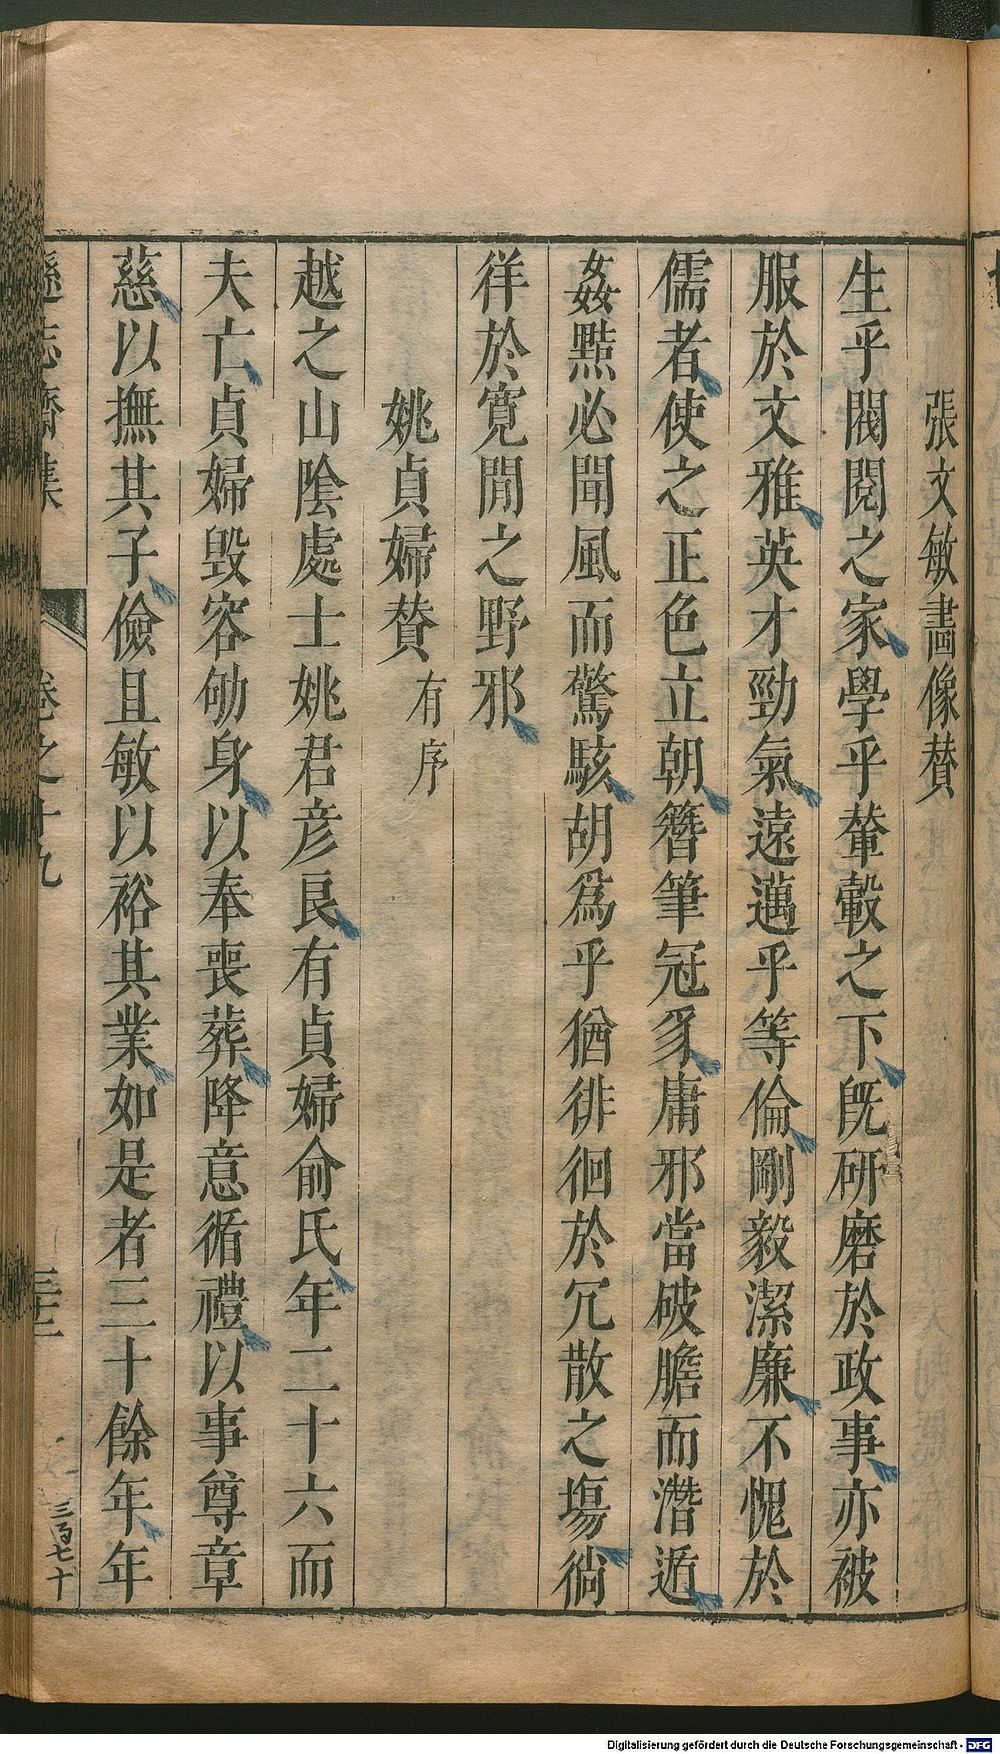 張文敏畫像贊
生乎閥閱之家學乎輦轂之下旣研磨於政事亦被
服於文雅英才勁氣遠邁乎等倫剛毅潔廉不愧於
儒者使之正色立朝簪筆冠豸庸邪當破膽而潛遁
姦黠必聞風而驚駭胡爲乎猶徘徊於冗散之塲徜
徉於寬閒之野邪
姚貞婦贊有序
越之山陰處士姚君彦良有貞婦俞氏年二十六而
夫亡貞婦毁容劬身以奉喪葬降意循禮以事尊章
慈以撫其子儉且敏以裕其業如是者三十餘年年
遜志齋集 卷之十九 三百七十
Digitalisierung gefördert durch die Deutsche Forschungsgemeinschaft - DFG